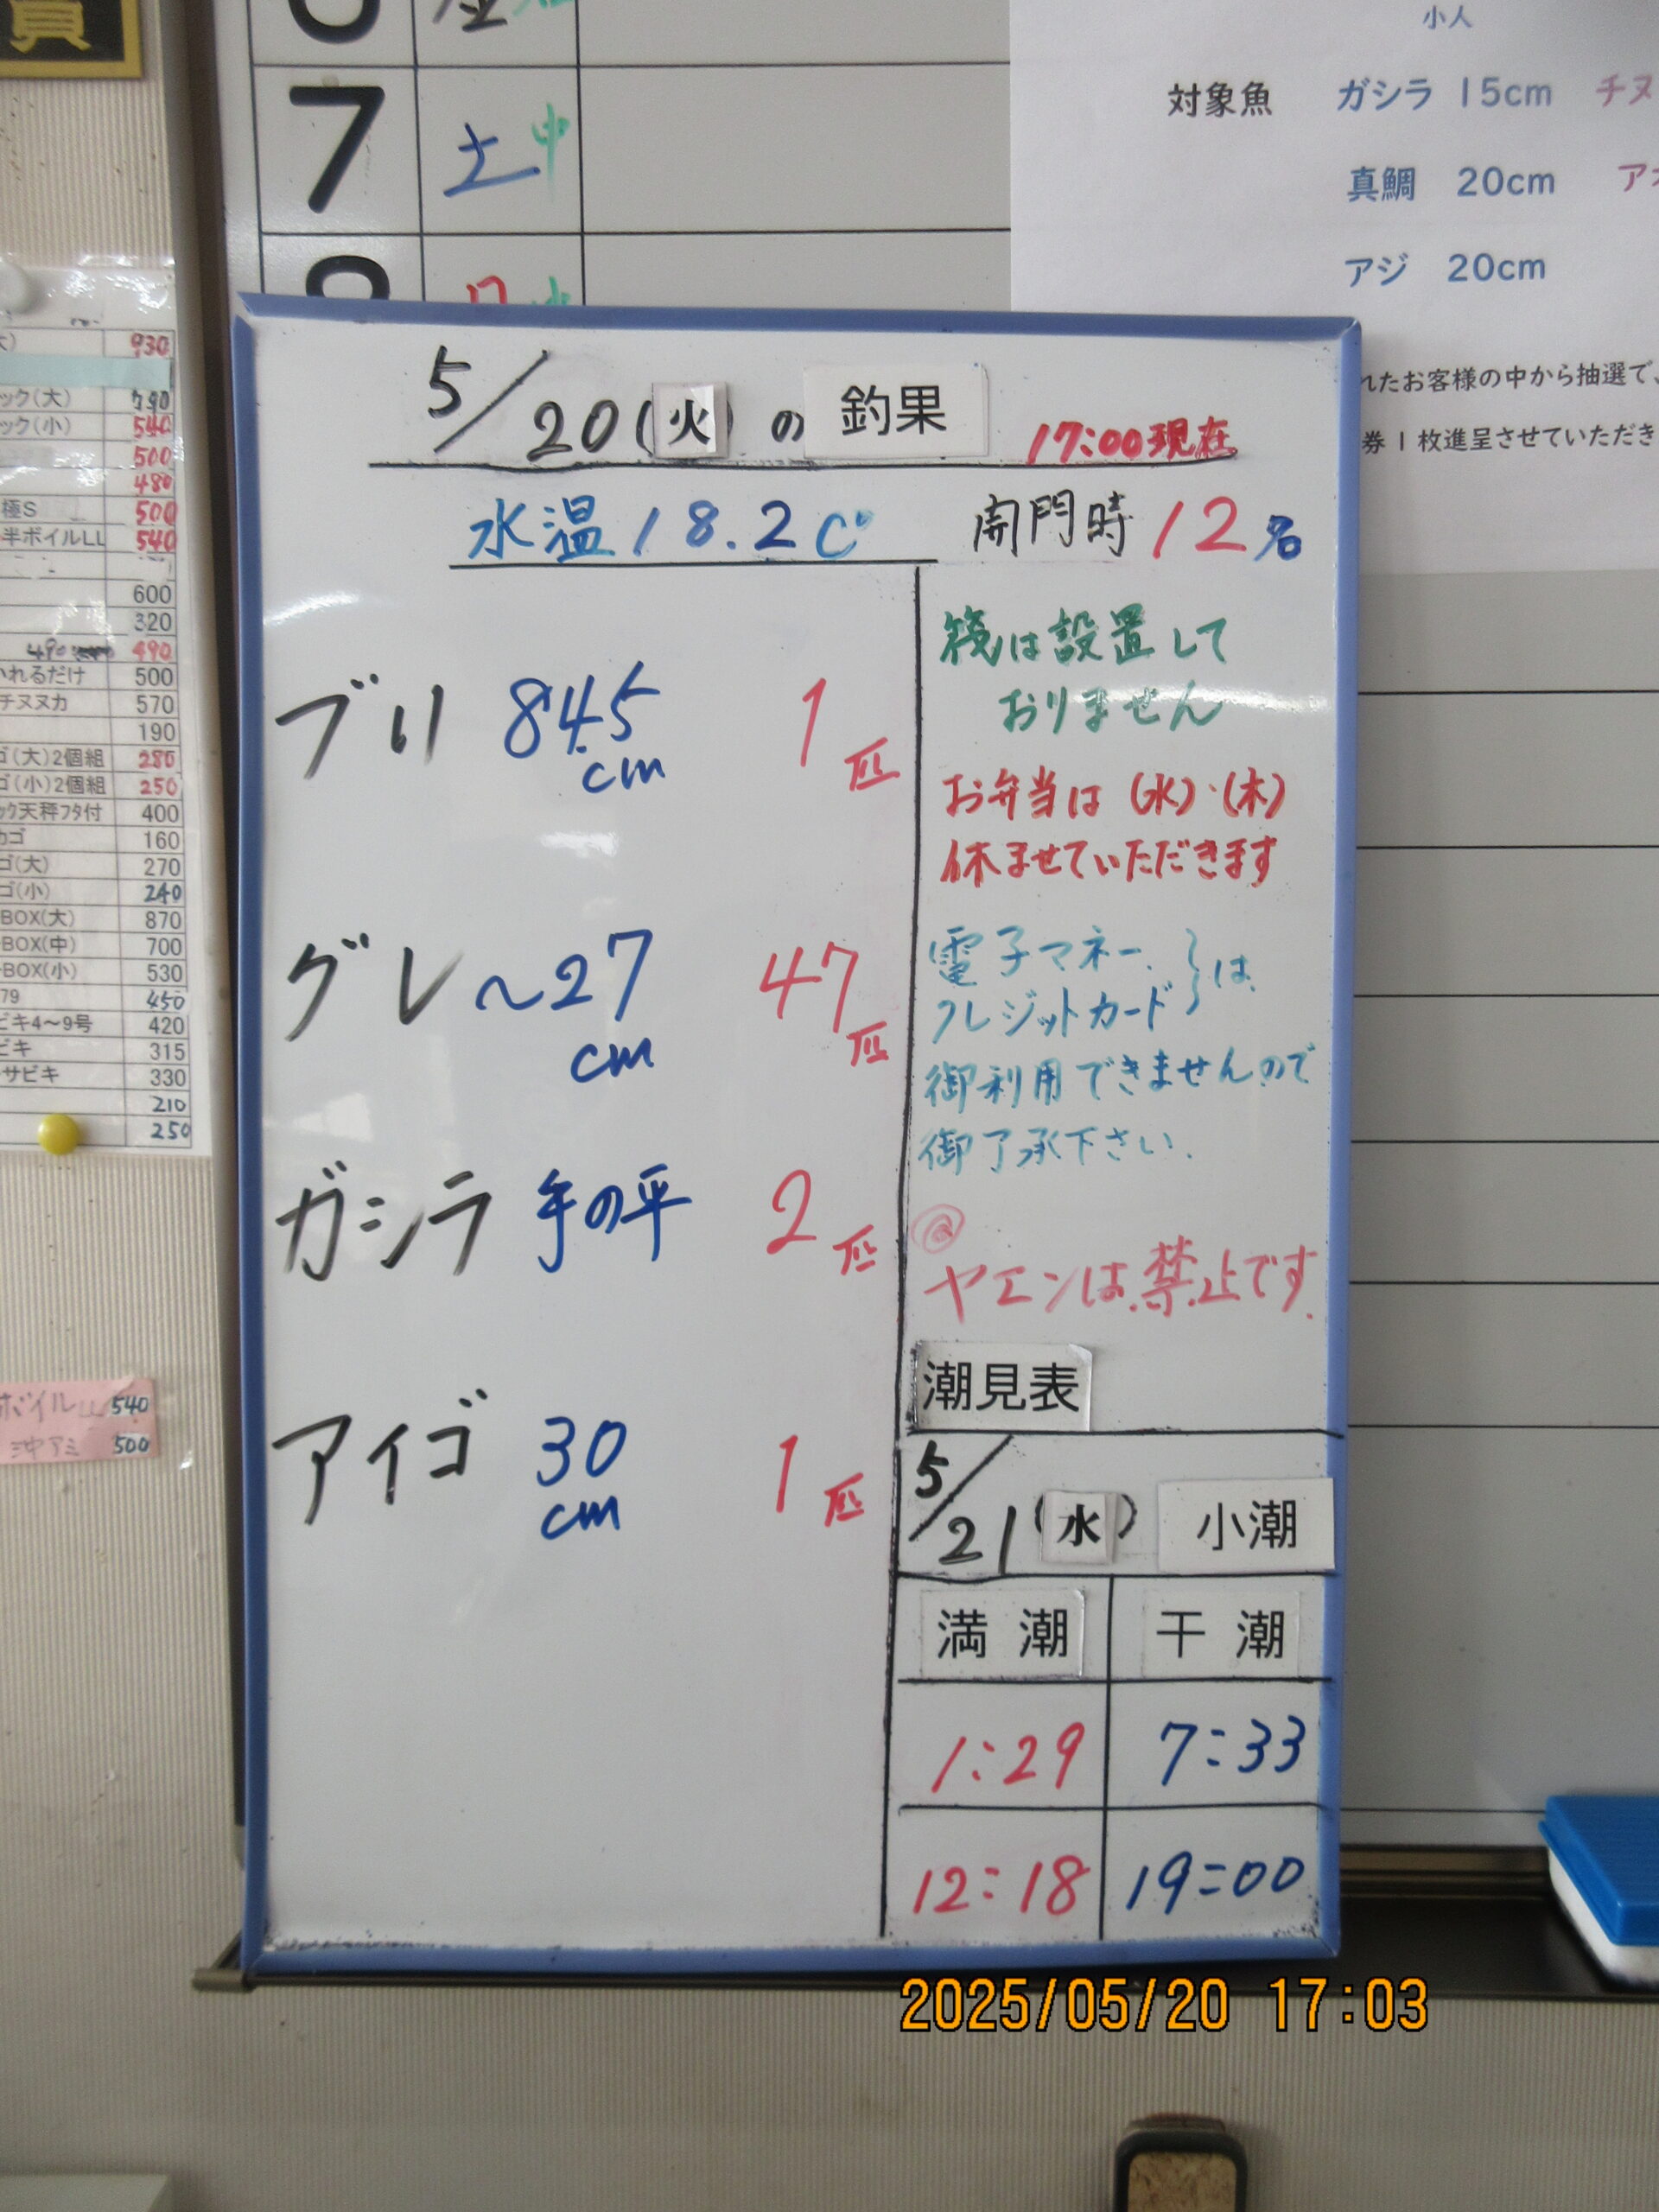 員
7 土 中
小人
対象魚 ガシラ 15cm チヌ
真鯛 20cm
アジ 20cm
れたお客様の中から抽選で、
券1枚進呈させていただき
930
ック(大)
ック(小) 540
500
480
極S 500
半ボイルLL 540
600
320
490 490
いれるだけ 500
チヌヌカ 570
190
ゴ(大)2個組 280
ゴ(小)2個組 250
ック天秤フタ付 400
カゴ 160
ゴ(大) 270
ゴ(小) 240
BOX(大) 870
BOX(中) 700
BOX(小) 530
79 450
ビキ4〜9号 420
ビキ 315
サビキ 330
210
250
ボイルLL 540
沖アミ 500
5/20(火)の釣果 17:00現在
水温18.2C° 開門時12名
ブリ 84.5cm 1匹
グレ 〜27cm 47匹
ガシラ 手の平 2匹
アイゴ 30cm 1匹
筏は設置して
おりません
お弁当は(水)・(木)
休ませていただきます
電子マネー、
クレジットカード}は、
御利用できませんので
御了承下さい.
@
ヤエンは禁止です.
潮見表
5/21(水) 小潮
満潮 干潮
1:29 7:33
12:18 19:00
2025/05/20 17:03